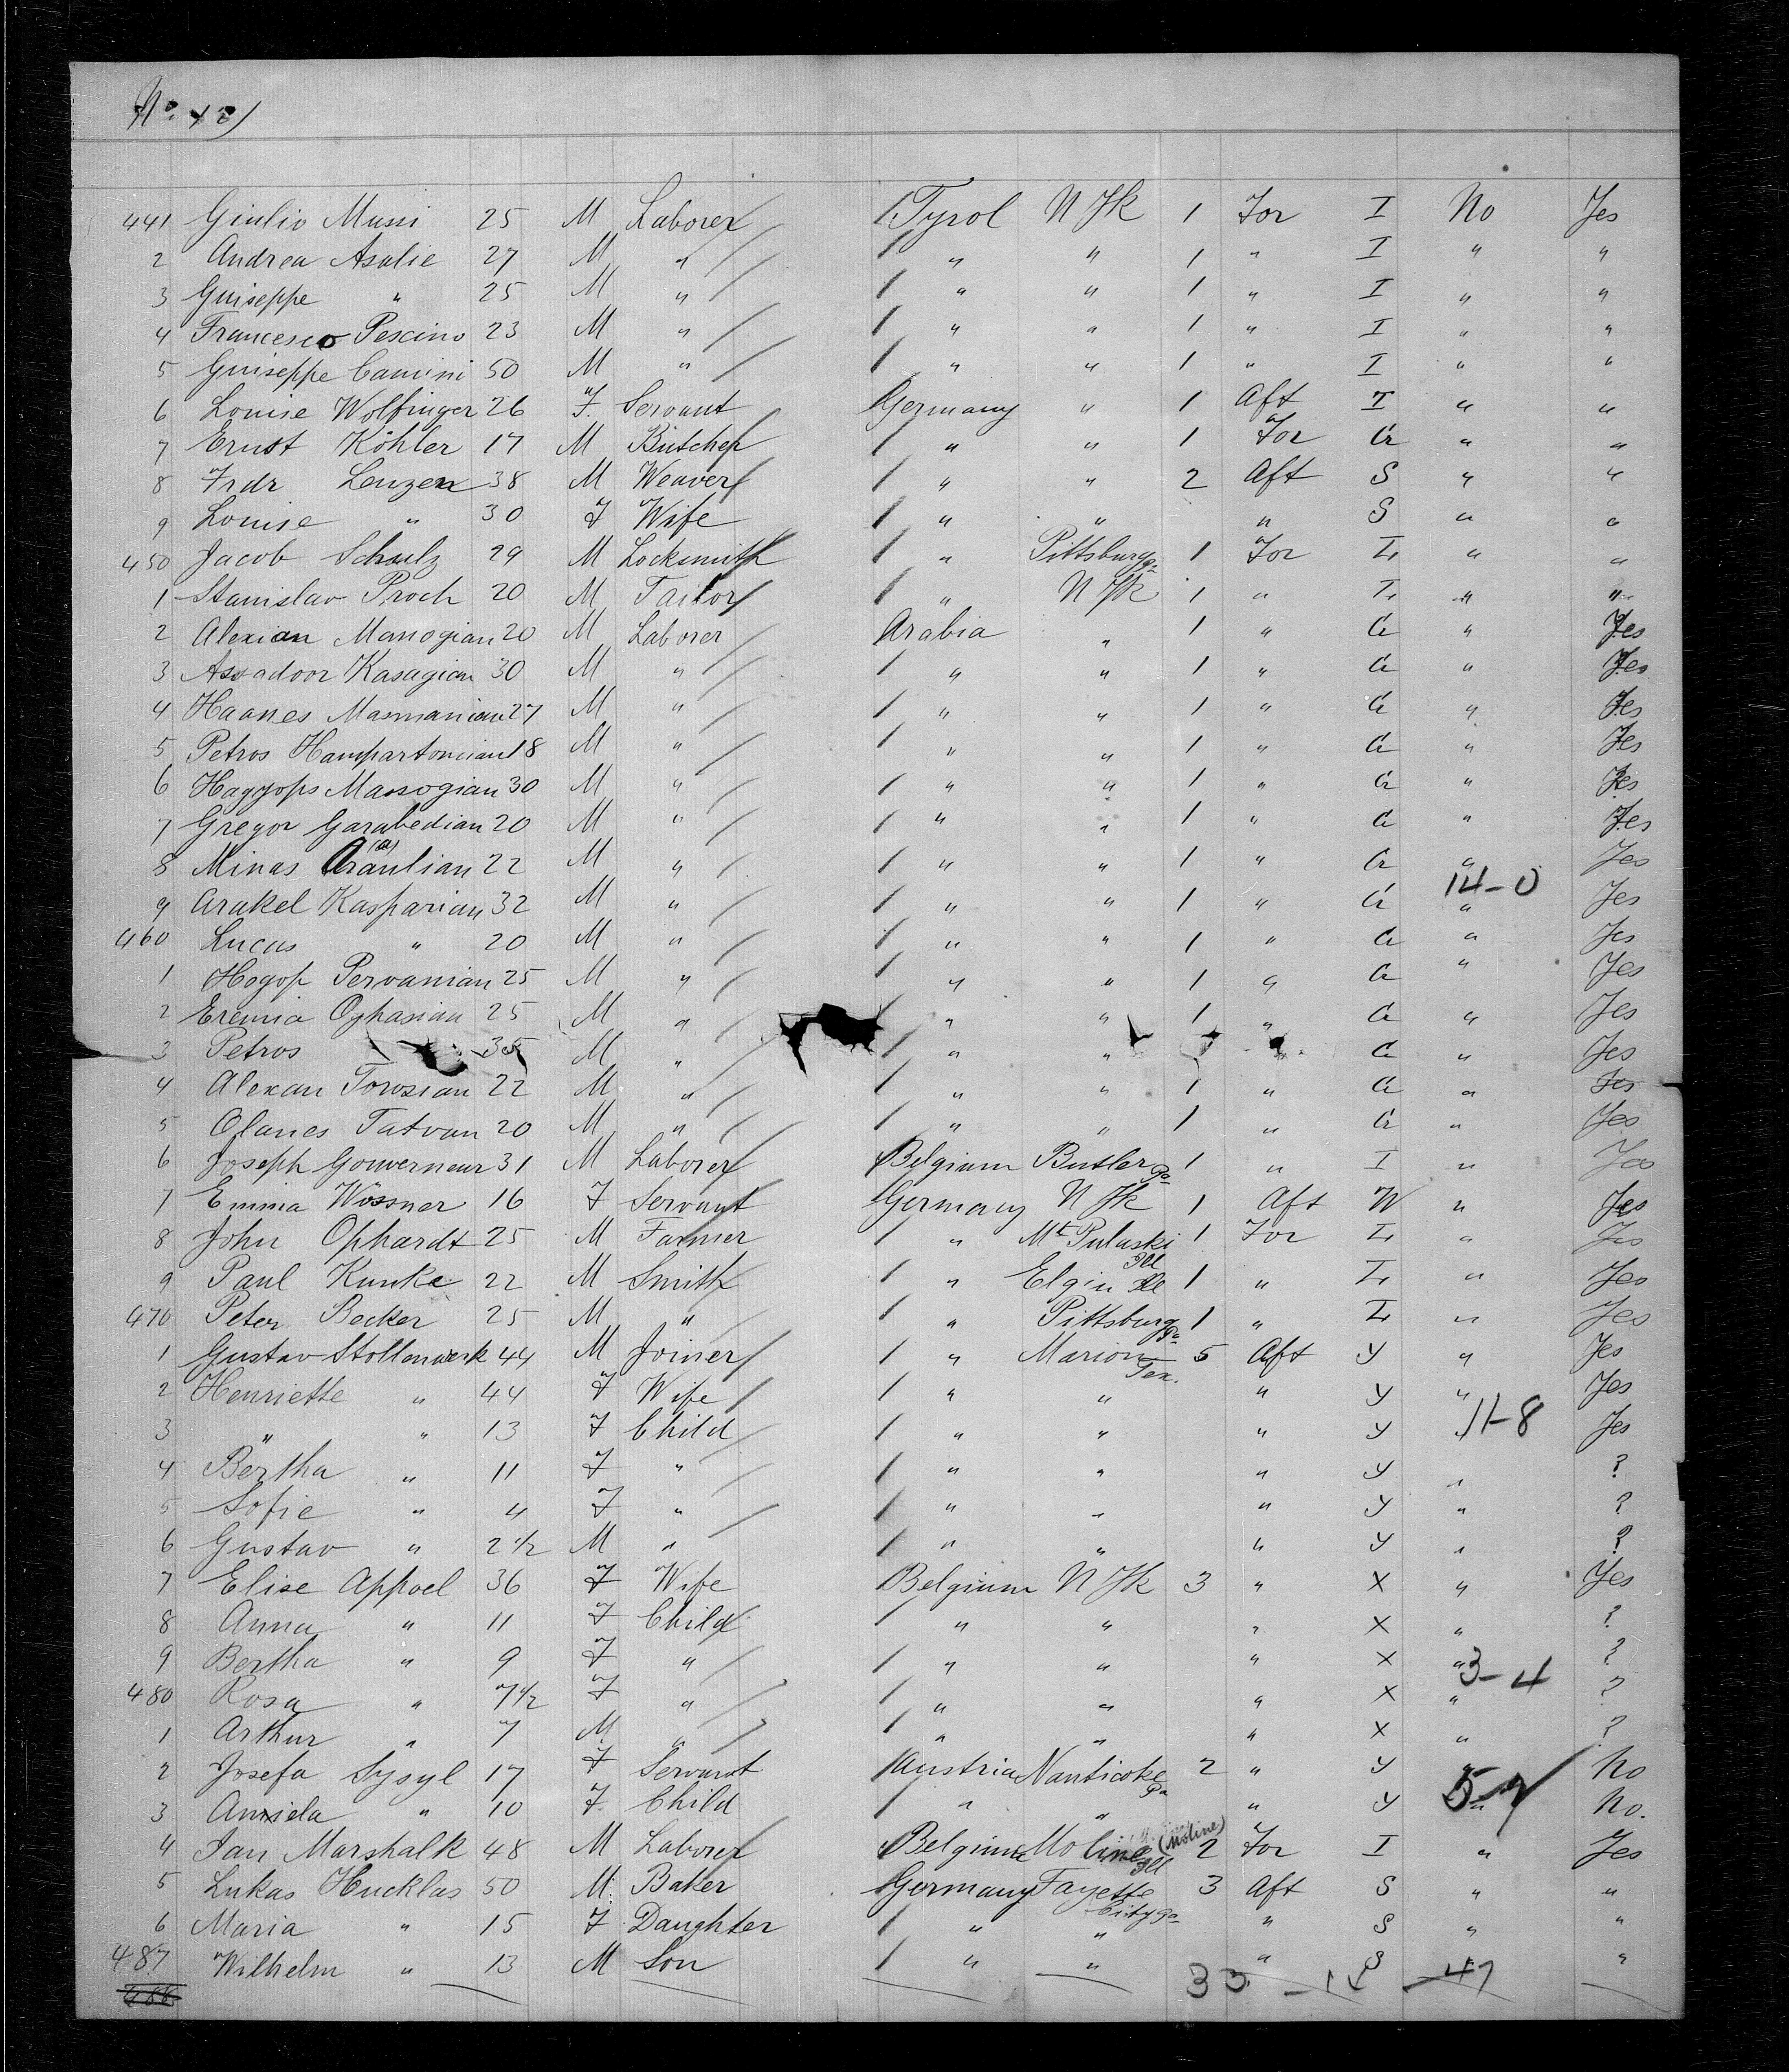 441 Giulio Mussi 25 M Laborer Tyrol N Yk 1 For I No Yes
2 Andrea Asalie 27 M " " " 1 " I " "
3 Guiseppe " 25 M " " " 1 " I " "
4 Francesco Pescino 23 M " " " 1 " I " "
5 Guiseppe Camini 50 M " " " 1 " I " "
6 Louise Wolfinger 26 F. Servant Germany " 1 Aft I " "
7 Ernst Köhler 17 M Butcher " " 1 For G " "
8 Frdr Lenzen 38 M Weaver " " 2 Aft S " "
9 Louise " 30 F Wife " " " S " "
450 Jacob Schulz 29 M Locksmith " Pittsburg Pa 1 For L " "
1 Stanislav Proch 20 M Tailor " N Yk 1 " L " "
2 Alexian Manogian 20 M Laborer Arabia " 1 " G " Yes
3 Asvadoor Kasagian 30 M " " " 1 " G " Yes
4 Haanes Masmanian 27 M " " " 1 " G " Yes
5 Petros Hampartomian 18 M " " " 1 " G " Yes
6 Hagyops Massogian 30 M " " " 1 " G " Yes
7 Gregor Garabedian 20 M " " " 1 " G " Yes
8 Minas (a) 22 M " " " 1 " G " Yes
14-0
9 Arakel Kasparian 32 M " " " 1 " G " Yes
460 Lucas " 20 M " " " 1 " G " Yes
1 Hogop Pervanian 25 M " " " 1 " G " Yes
2 Eremia Ophasian 25 M " " " 1 " G " Yes
3 Petros M " " " " G " Yes
4 Alexan Torosian 22 M " " " 1 " G " Yes
5 Olanes Tatvan 20 M " " " 1 " G " Yes
6 Joseph Gouverneur 31 M Laborer Belgium Butler Pa 1 " I " Yes
7 Emma Wössner 16 F Servant Germany N Yk 1 Aft W " Yes
8 John Ophardt 25 M Farmer " Mt Pulaski Ill 1 For L " Yes
9 Paul Kunke 22 M Smith " Elgin Ill 1 " L " Yes
470 Peter Becker 25 M " " Pittsburg Pa 1 " L " Yes
1 Gustav Stollenwerk 44 M Joiner " Marion Tex. 5 Aft Y " Yes
2 Henriette " 44 F Wife " " " Y " Yes
11-8
3 " " 13 F Child " " " Y " Yes
4 Bertha " 11 F " " " " Y " ?
5 Sofie " 4 F " " " " Y " ?
6 Gustav " 2 1/2 M " " " " Y " ?
7 Elise Appoel 36 F Wife Belgium N Yk 3 " X " Yes
8 Anna " 11 F Child " " " X " ?
9 Bertha " 9 F " " " " X " ?
3-4
480 Rosa " 7 1/2 F " " " " X " ?
1 Arthur " 7 M " " " " X " ?
2 Josefa Sysyl 17 F Servant Austria Nanticoke Pa 2 " Y " No
3 Aniela " 10 F Child " " " Y " No.
4 Jan Marshalk 48 M Laborer Belgium Moline (Moline) Ill 2 For I " Yes
5 Lukas Hucklas 50 M Baker Germany Fayette City Pa 3 Aft S " "
6 Maria " 15 F Daughter " " " S " "
487 Wilhelm " 13 M Son " " " S "
488